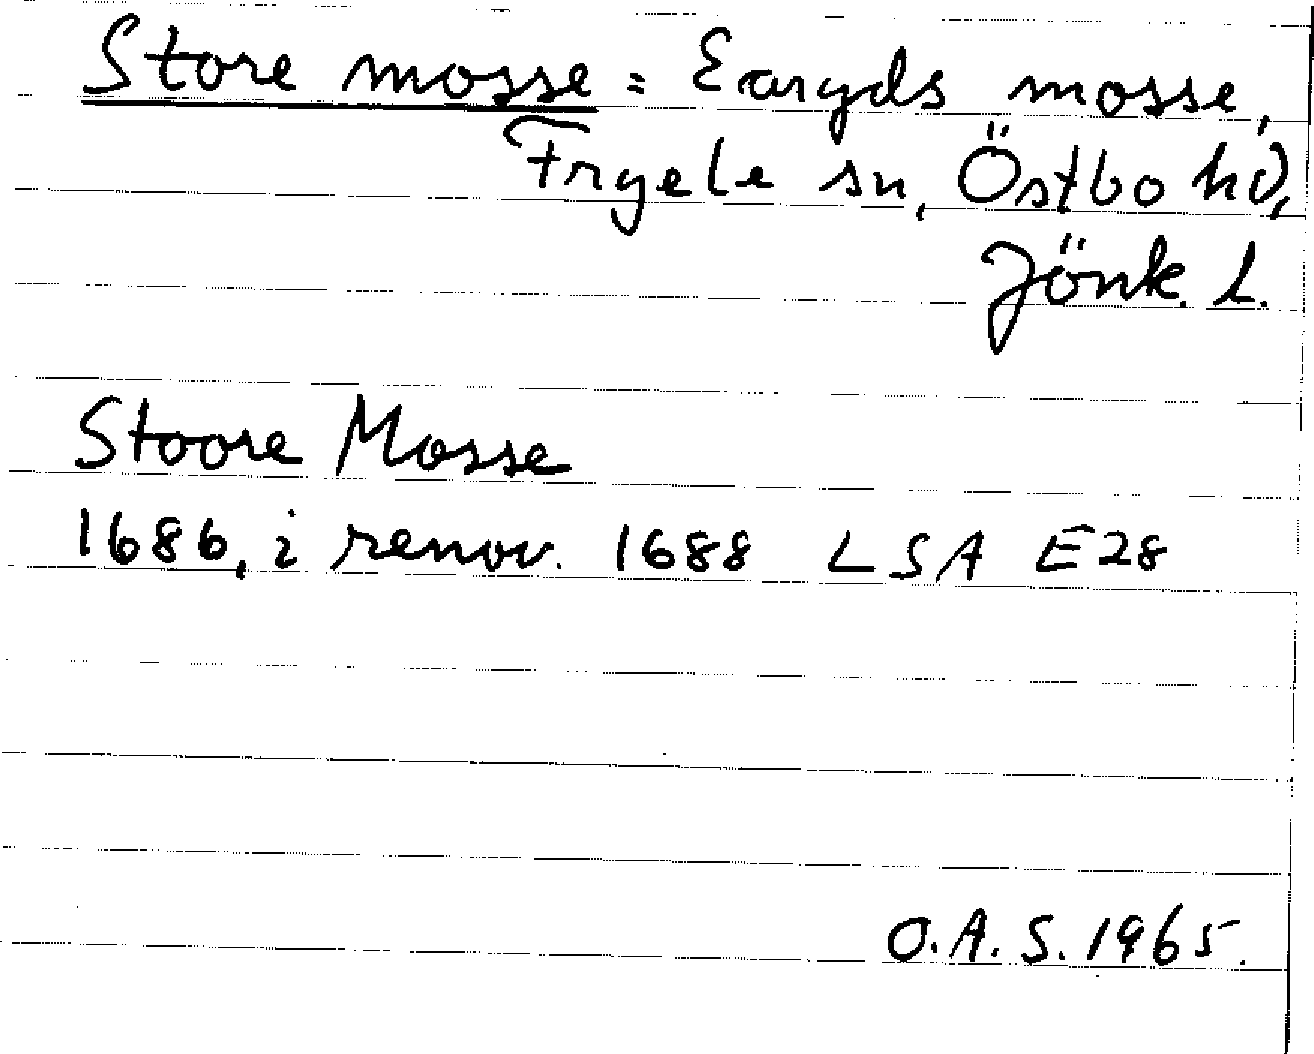 Store mosse = Earyds mosse,
Fryele sn, Östbo hd,
Jönk. L.
Stoore Mosse
1686, i renov. 1688 LSA E28
O.A.S. 1965.